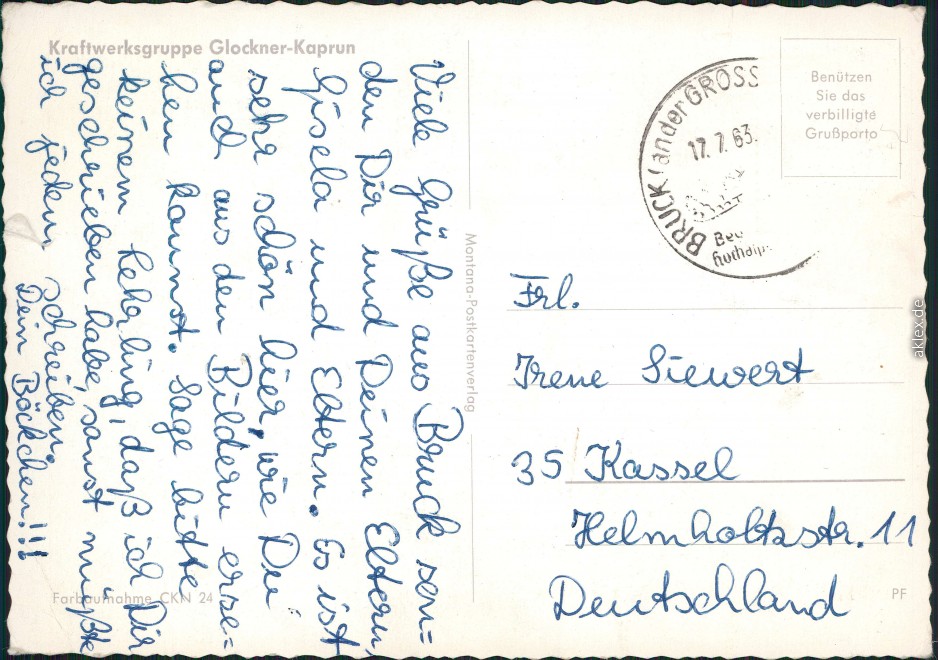 Kraftwerksgruppe Glockner-Kaprun
Viele Grüße aus Bruck sen=
den Dir und Deinen Eltern,
Gisela und Eltern. Es ist
sehr schön hier, wie Du
auch aus den Bildern erse=
hen kannst. Sage bitte
keinem Lehrling, daß ich Dir
geschrieben habe, sonst müßte
ich jedem schreiben.
Dein Böckchen!!!
Farbaufnahme CKN 24
Montana-Postkartenverlag
BRUCK (an der GROSS
17. 7. 63.
Benützen
Sie das
verbilligte
Grußporto
Frl.
Irene Siewert
35 Kassel
Helmholtzstr. 11
Deutschland
PF
aklex.de